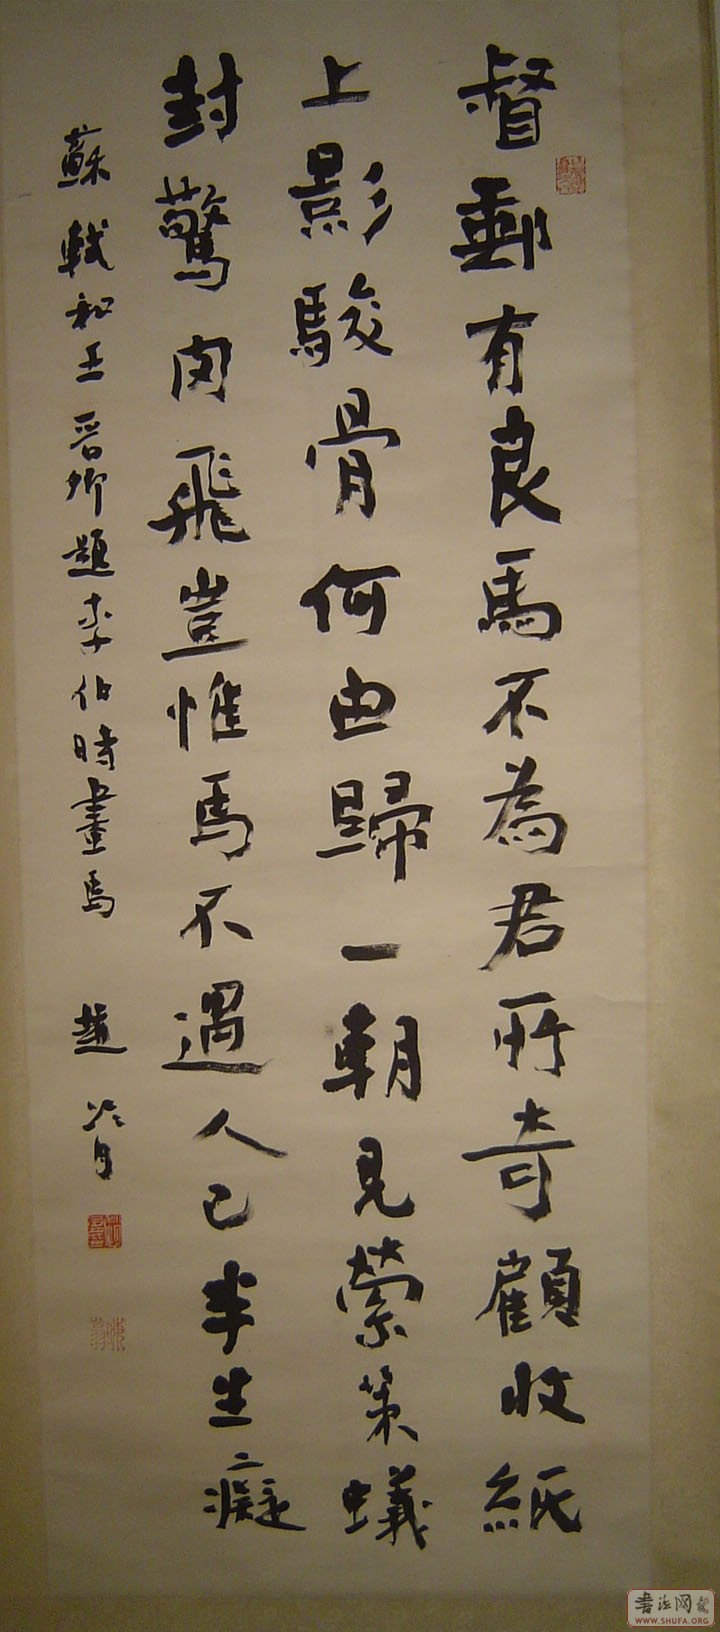 督郵有良馬不為君所奇顧收紙
上影駿骨何由歸一朝見縈策蟻
封驚肉飛豈惟馬不遇人已半生癡
蘇軾和王晉卿題李伯時畫馬 趙冷月
書法网
WWW.SHUFA.ORG